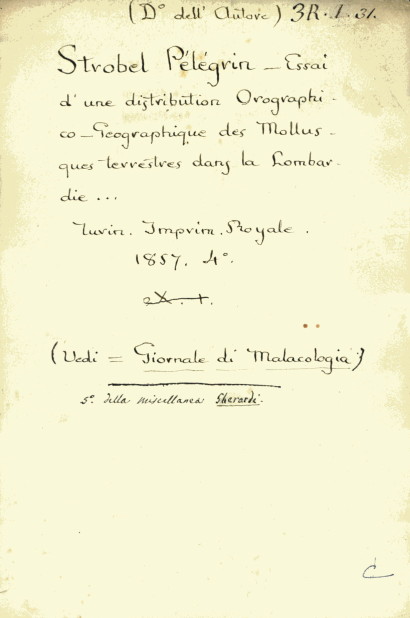 (D.° dell' Autore) 3R. 1. 31.
Strobel Pélégrin — Essai
d'une distribution Orographi-
co-Geographique des Mollus-
ques terrestres dans la Lombar-
die...
Turin. Imprim. Royale.
1857. 4°.
(Vedi = Giornale di Malacologia)
5° della miscellanea Gherardi.
C